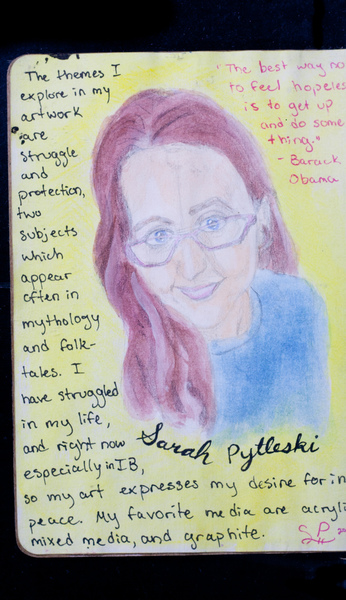 The themes I
explore in my
artwork
are
struggle
and
protection,
two
subjects
which
appear
often in
mythology
and folk-
tales. I
have struggled
in my life,
and right now
especially in IB,
so my art expresses my desire for in
peace. My favorite media are acryli
mixed media, and graphite.
"The best way no
to feel hopeles
is to get up
and do some
thing."
- Barack
Obama
Sarah Pytleski
SP